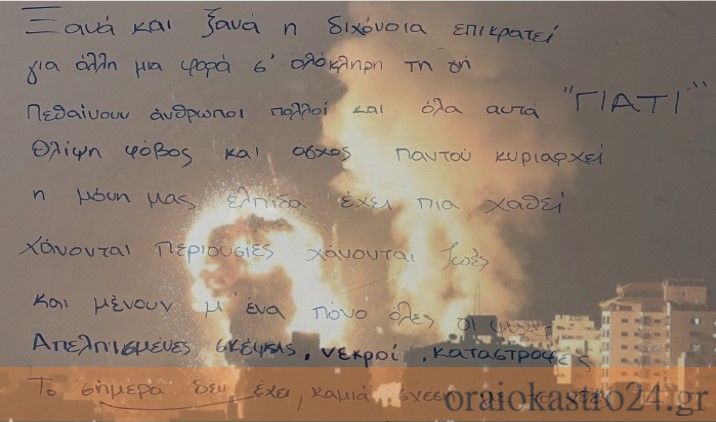 Ξανά και ξανά η διχόνοια επικρατεί
για άλλη μια φορά σ' ολόκληρη τη γή
Πεθαίνουν άνθρωποι πολλοί και όλα αυτά "ΓΙΑΤΙ"
Θλίψη φόβος και άσχος παντού κυριαρχεί
η μόνη μας ελπίδα έχει πια χαθεί
Χάνονται περιουσίες χάνονται ζωές
και μένουν μ' ένα πόνο όλες οι
Απελπισμένες σκέψεις, νεκροί, καταστροφές
Το σήμερα δεν έχει, καμιά σχέση με το
oraiokastro24.gr